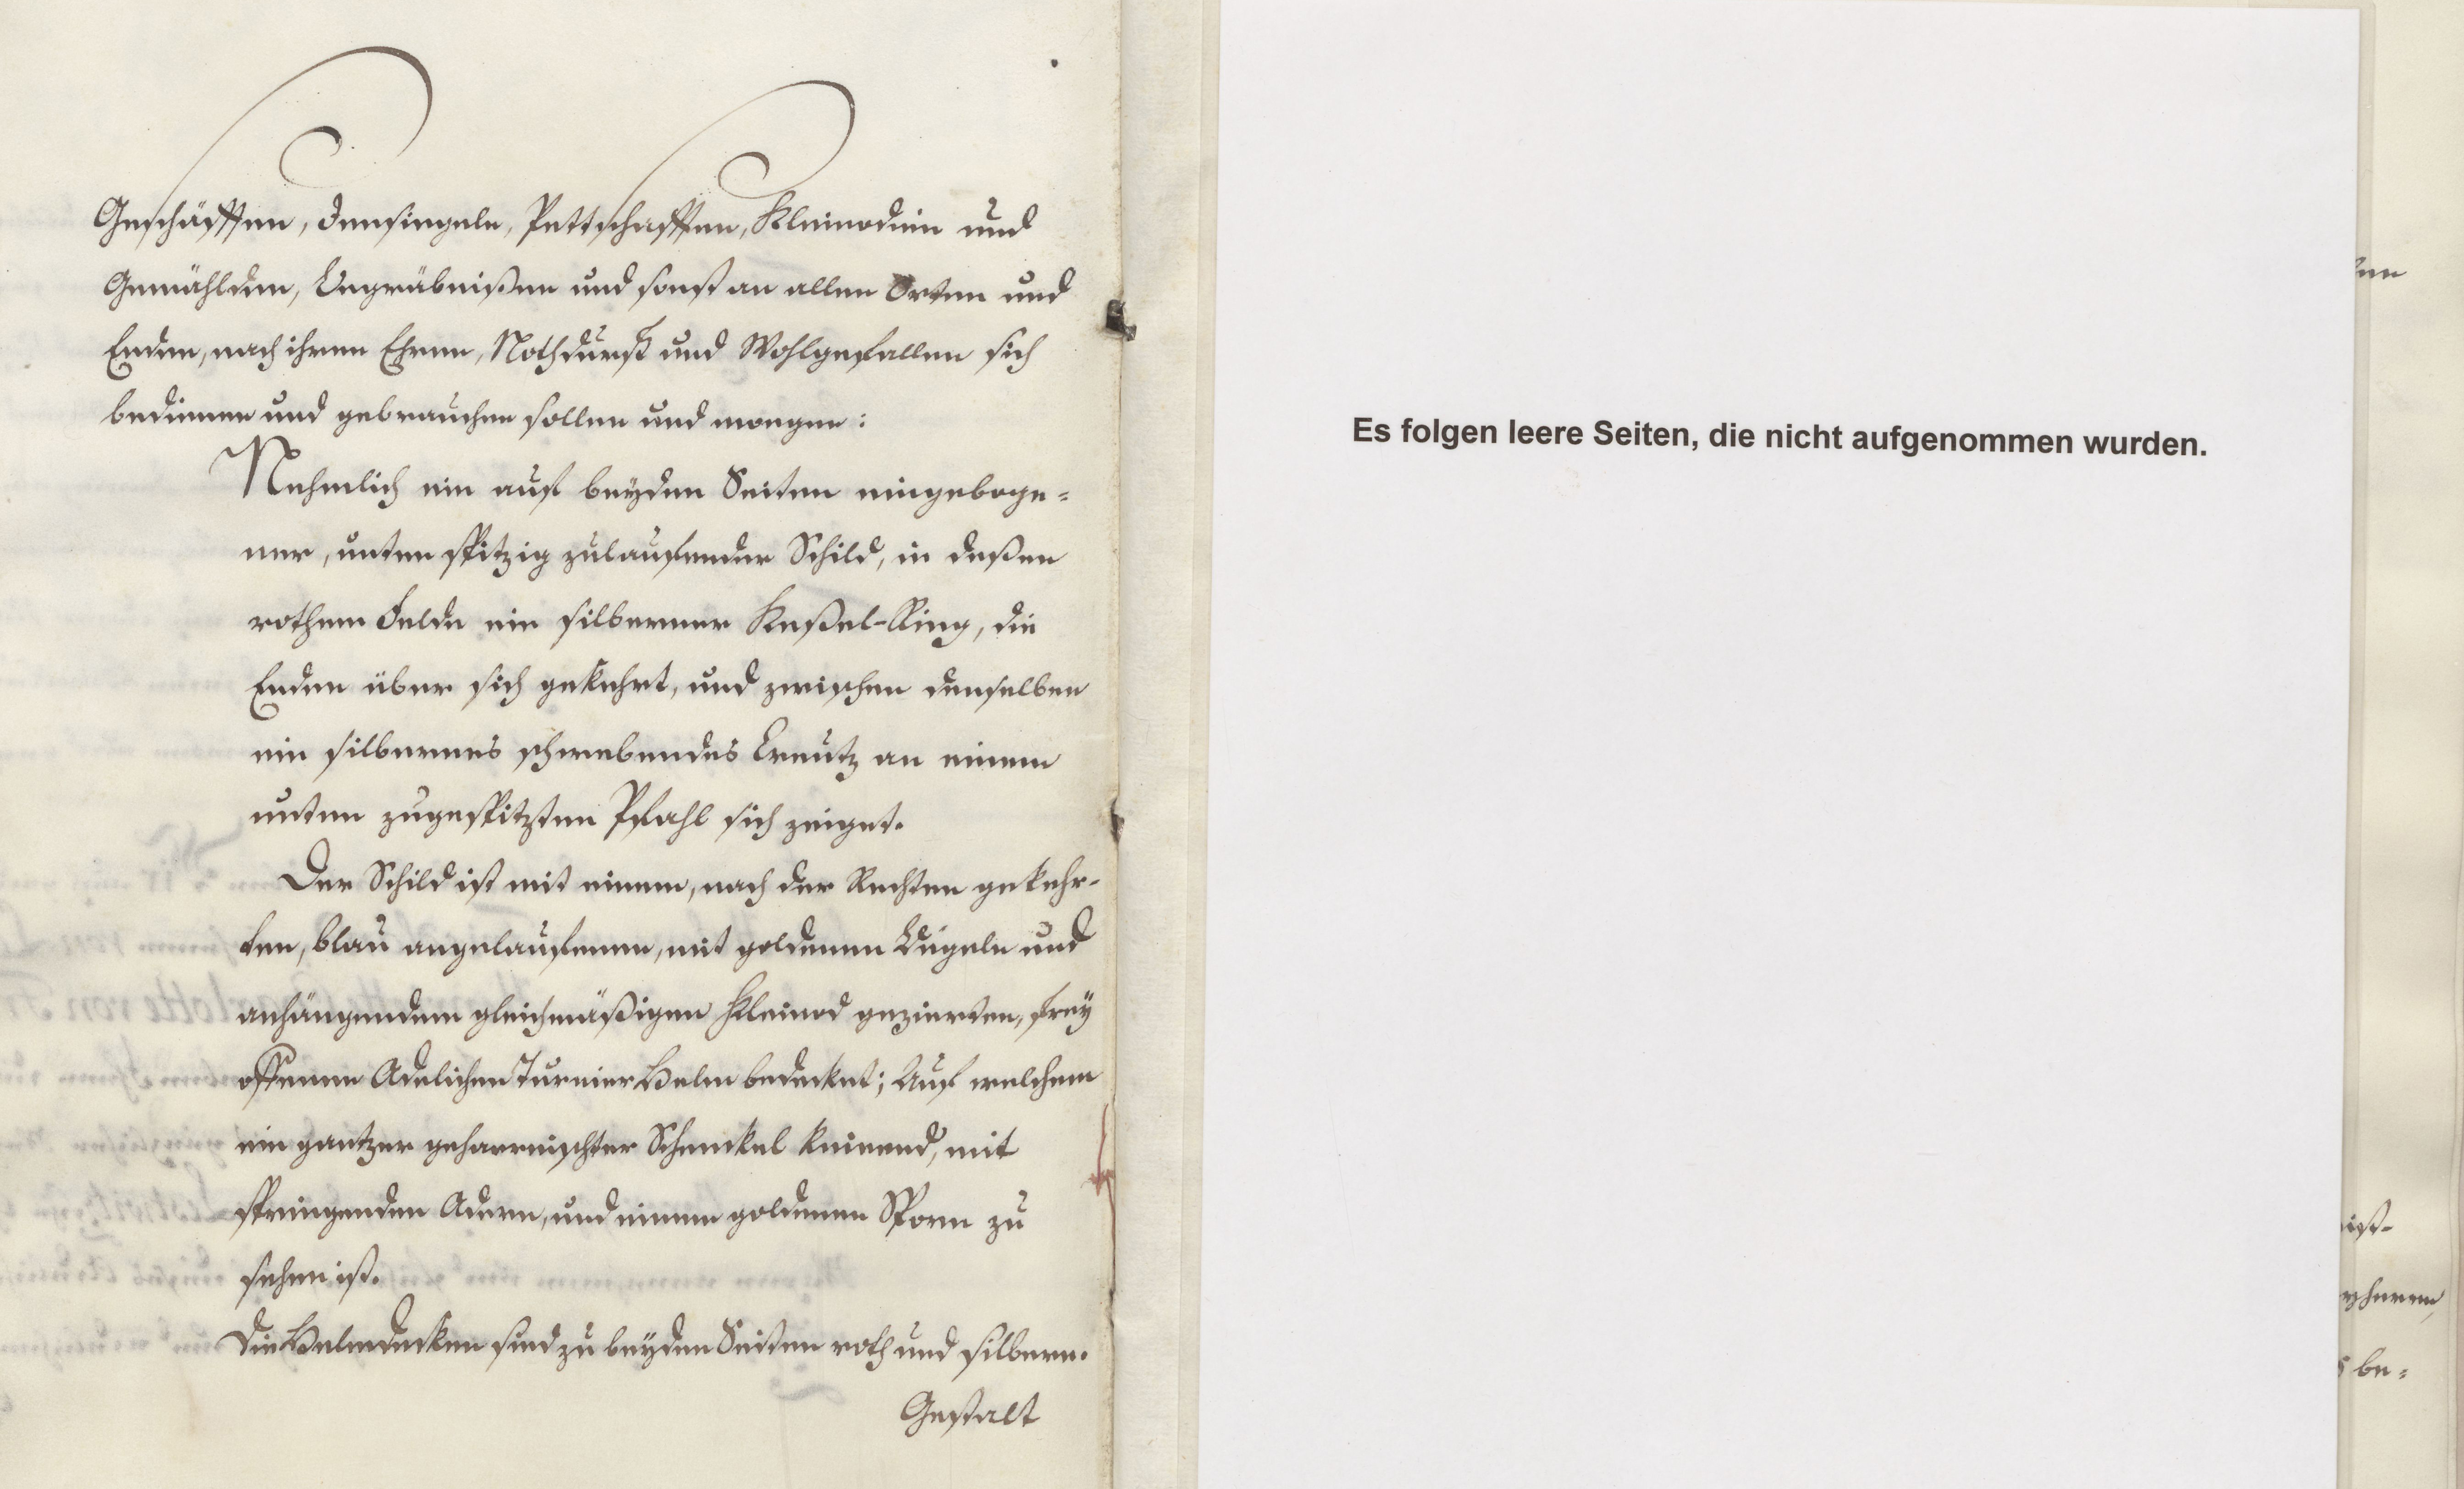 Geschäfften, Innsiegeln, Pettschafften, Kleinodien und
Gemählden, Begräbnißen und sonst an allen Orten und
Enden, nach ihren Ehren, Nothdurft und Wohlgefallen sich
bedienen und gebrauchen sollen und moegen:
Nehmlich ein auf beyden Seiten eingeboge=
ner, unten spitzig zulaufender Schild, in deßen
rothem Felde ein silberner Keßel-Ring, die
Enden über sich gekehrt, und zwischen denselben
ein silbernes schwebendes Creutz an einem
unten zugespitzten Pfahl sich zeiget.
Der Schild ist mit einem, nach der Rechten gekehr-
ten, blau angelaufenen, mit goldenen Bügeln und
anhängendem gleichmäßigen Kleinod gezierten, frey
offenen Adelichen Turnier Helm bedecket; Auf welchem
ein gantzer geharnischter Schenckel knieend, mit
springenden Adern, und einem goldenen Sporn zu
sehen ist.
Die Helmdecken sind zu beyden Seiten roth und silbern.
Gestalt
Es folgen leere Seiten, die nicht aufgenommen wurden.
be=